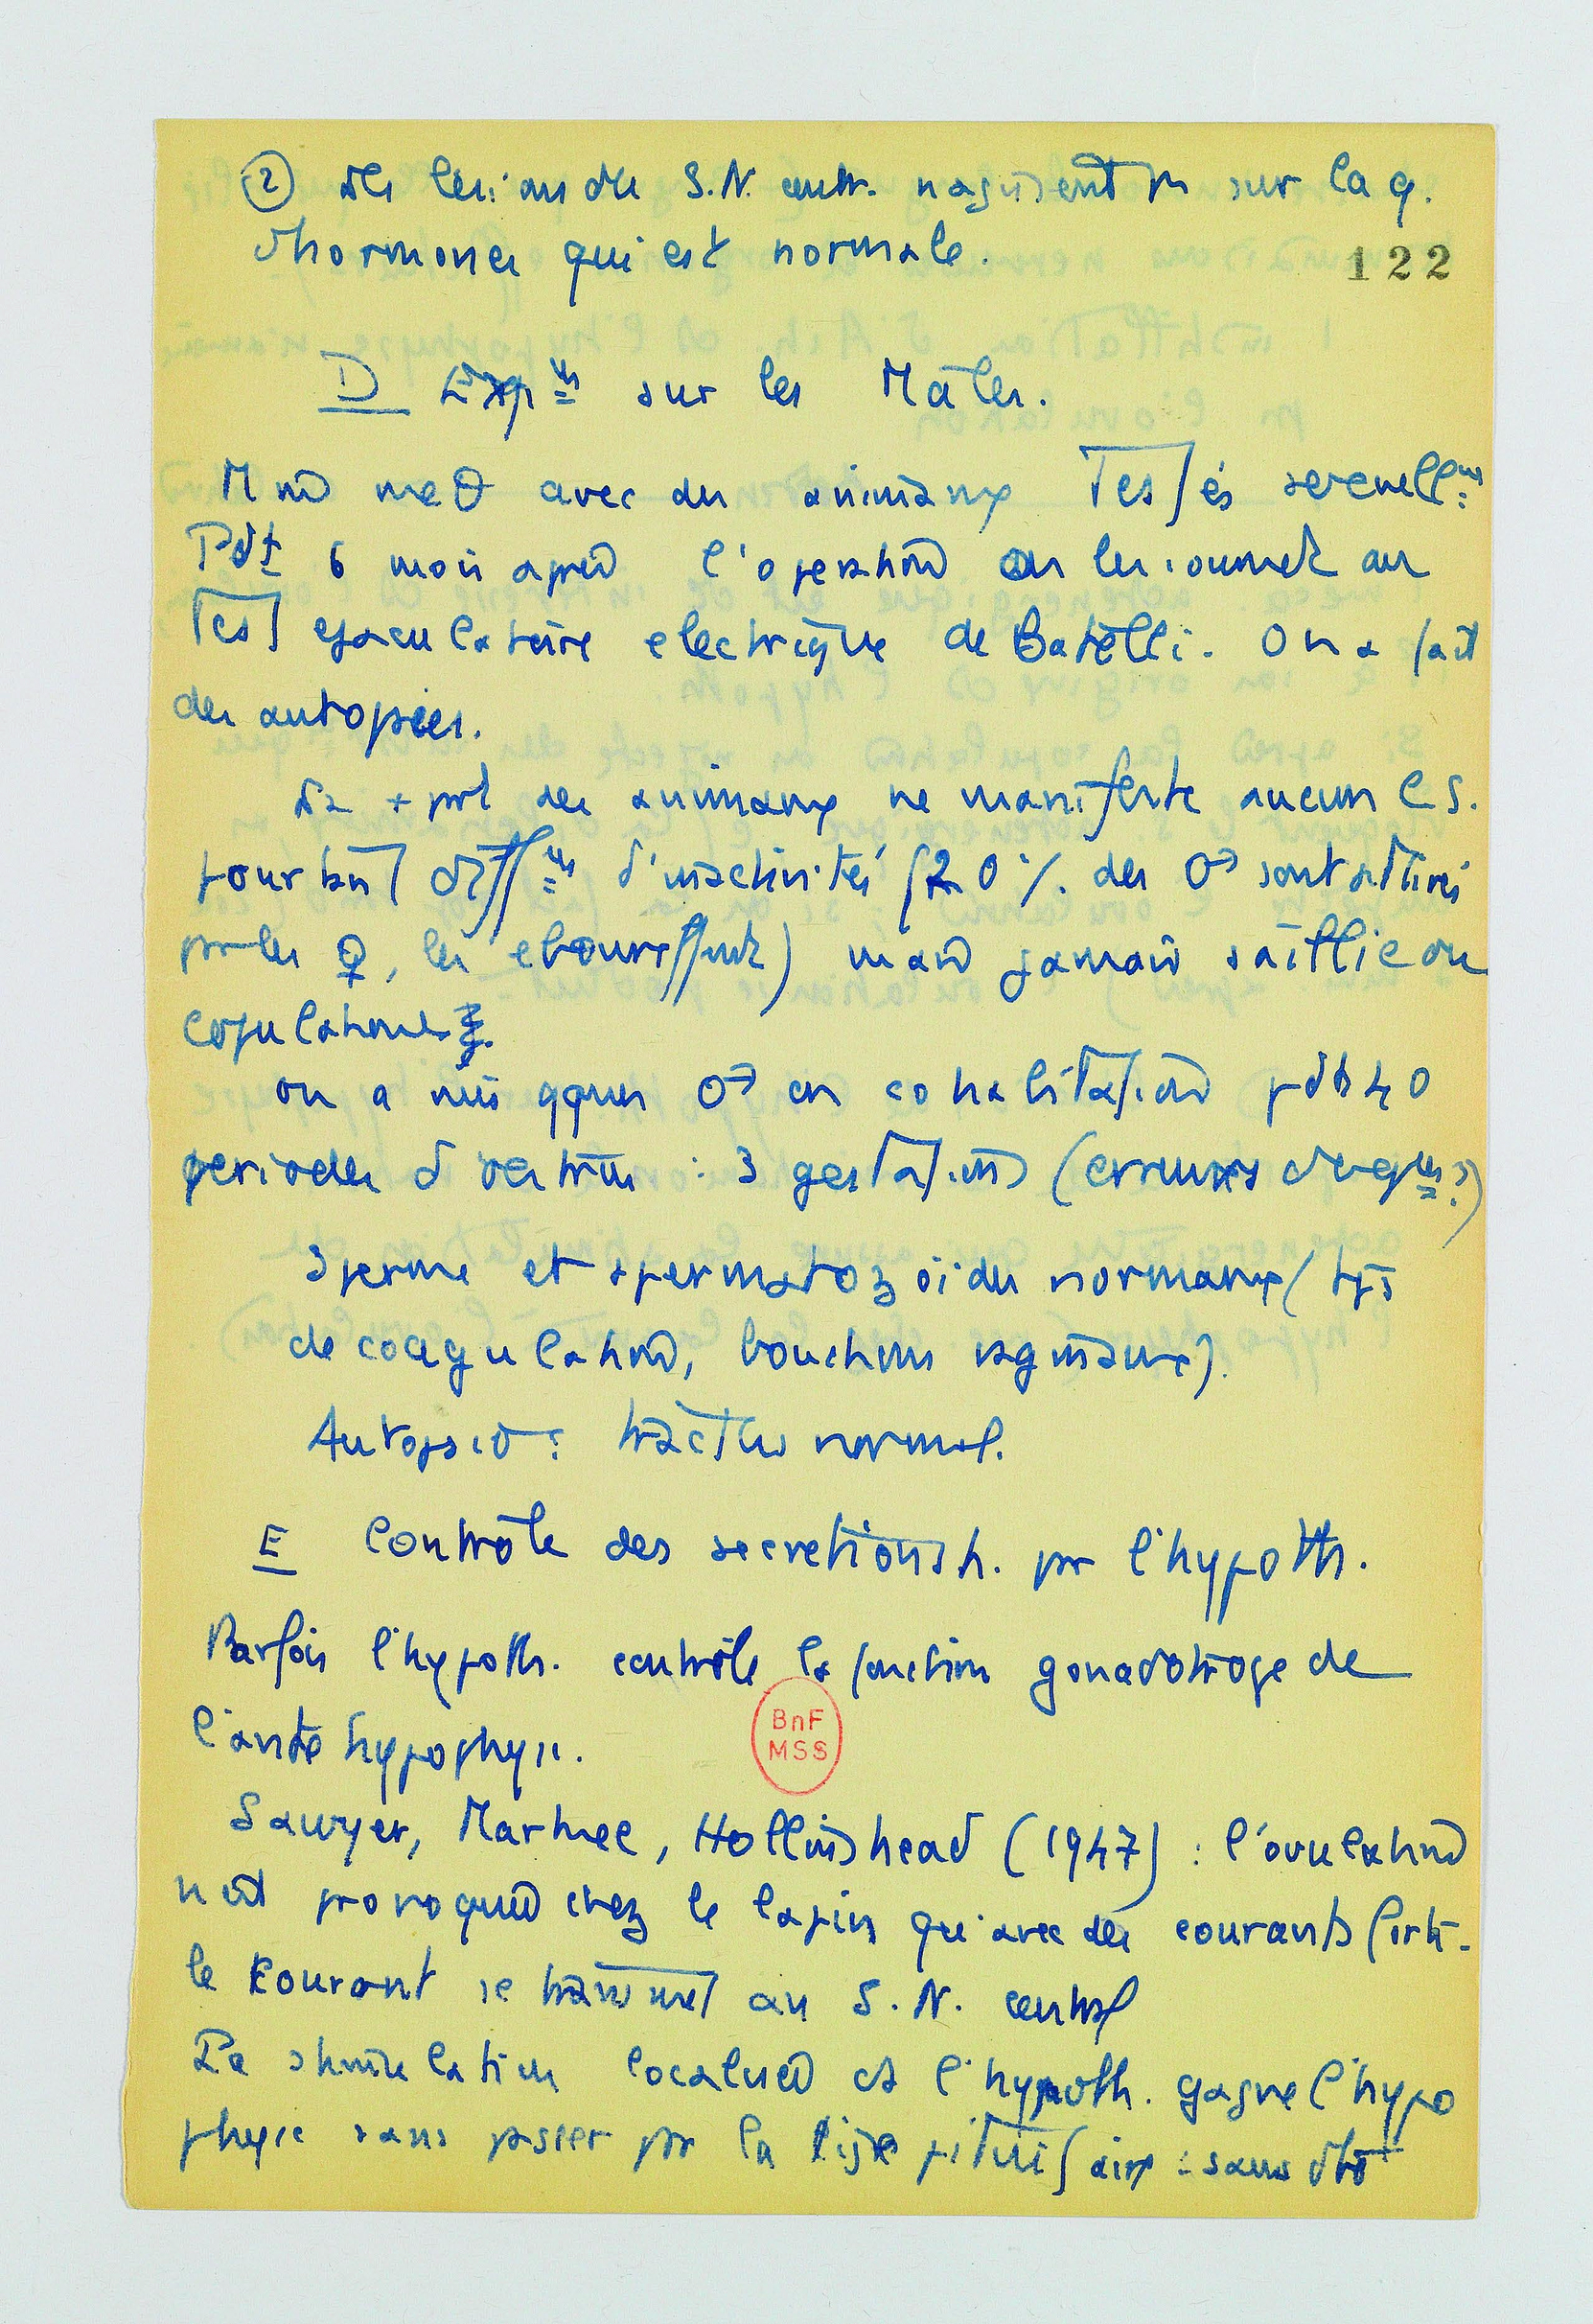 ② des lésions du S.N. centr. n'agissent pr sur la q.
d'hormones qui est normale.
122
D Expns sur les Mâles.
M me θ avec des animaux testés sexuellnt
Pdt 6 mois après l'opération on les soumet au
Test ejaculatoire electrique de Batelli. On a fait
des autopsies.
La + prt des animaux ne manifeste aucun C S.
pourtant diffns d'inactivités (20 % des ♂ sont attirés
par les ♀, les ebouriffent) mais jamais saillie ou
copulation
on a mis qques ♂ en cohabitation pdt 40
periodes d'oestrus : 3 gestations (erreurs ?)
Sperme et spermatozoïdes normaux (tps
de coagulation, bouchons vaginaux).
Autopsie : tractus normal.
E Contrôle des secretions h. pr l'hypoth.
Parfois l'hypoth. contrôle la fonction gonadotrope de
l'antehypophyse.
Sawyer, Markee, Hollinshead (1947) : l'ovulation
n'est provoquée chez le lapin qu'avec des courants forts.
le courant se transmet au S. N. central
La stimulation localisée ds l'hypoth. gagne l'hypo
physe sans passer pr la tige pituitaire : sans dte
BnF
MSS